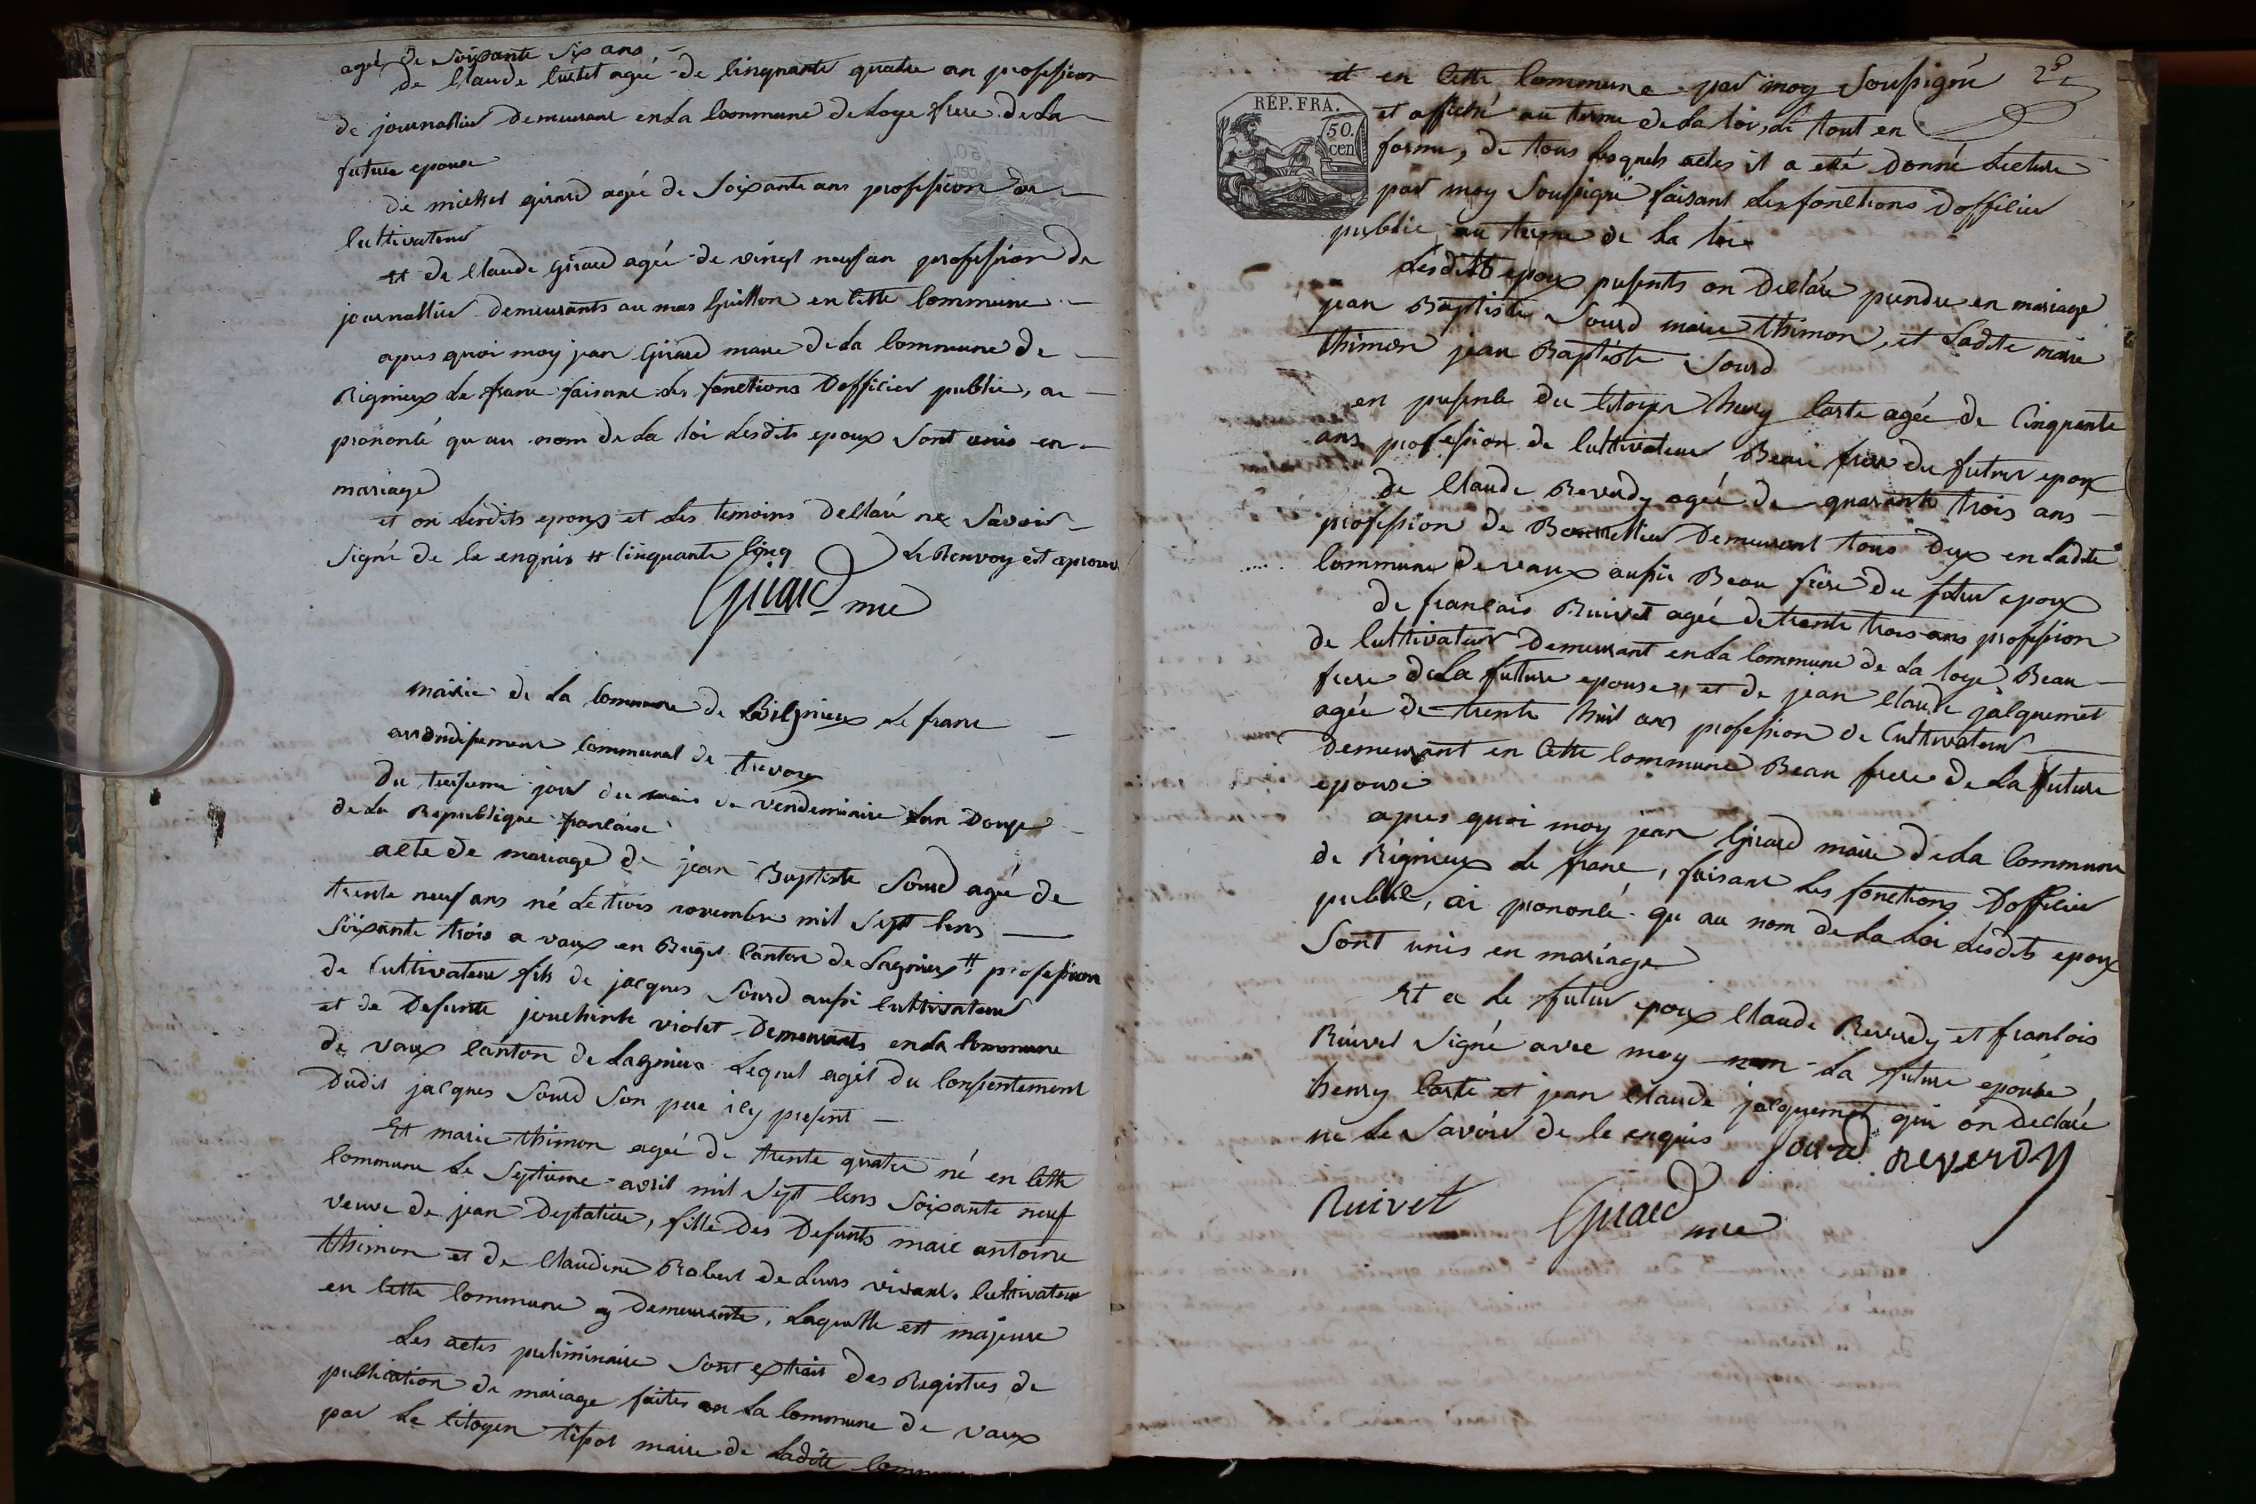 agé de soixante six ans
de Claude Curtet agé de Cinquante quatre an profession
de journallier Demeurant en La Commune de Loye frere de La
future epouse
de michel girard agée de Soixante ans profession de
Cultivateur
et de Claude Girard agée de vingt neuf an profession de
journallier demeurants au mas Guillon en Cette Commune
apres quoi moy jean Girard maire de La Commune de
Rignieux Le franc faisant Les fonctions D'officier public, ai
prononcé qu au nom de La loi Lesdits epoux Sont unis en
mariage
et on Lesdits epoux et Les temoins Declaré ne Savoir
Signé de ce enquis # Cinquante Cinq Le Renvoy est aprouvé
Girard mre
mairie de La Commune de Rignieux Le franc
arrondissement Communal de trevoux
Du treisieme jour du mois de vendemiaire Lan Douze
de La Republique francaise
acte de mariage de jean Baptiste Sourd agée de
trente neuf ans né Le trois novembre mil Sept Cens
Soixante trois a vaux en Bugei Canton de Lagnieux # profession
de Cultivateur fils de jacques Sourd aussi Cultivateur
et de Defunte jouchinte violet Demeurants en La Commune
de vaux Canton de Lagnieux Lequel agit du Consentement
Dudit jacques Sourd Son pere icy present
Et marie thimon agée de trente quatre né en Cette
Commune Le Septieme avril mil Sept Cens Soixante neuf
veuve de jean , fille Des Defunts marc antoine
thimon et de Claudine Robert de Leurs vivant Cultivateur
en Cette Commune y Demeurante, Laquelle est majeure
Les actes preliminaire Sont extrait des Registres de
publication de mariage faites en La Commune de vaux
par Le Citoyen maire de Ladite Commune
et en Cette Commune par moy Soussigné 2e
RÉP. FRA.
50.
cen
et affiché au terme de La loi, le tout en
forme, de tous lesquels actes il a eté Donné Lecture
par moy Soussigné faisant Les fonctions D'officier
public au terme de La loi
Lesdits epoux presents on Declaré prendre en mariage
jean Baptiste Sourd marie thimon, et Ladite marie
thimon jean Baptiste Sourd
en presence du Citoyen henry Carte agée de Cinquante
ans profession de Cultivateur Beau frere du futur epoux
de Claude Reverdy agée de quarante trois ans
profession de Demeurant tous Deux en Ladite
Commune de vaux aussi Beau frere du futur epoux
de francois Ruivet agée de trente trois ans profession
de Cultivateur Demeurant en La Commune de La loye Beau
frere de La future epouse, et de jean Claude jacquemet
agée de trente huit ans profession de Cultivateur
Demeurant en Cette Commune Beau frere de La future
epouse
apres quoi moy jean Girard maire de La Commune
de Rignieux Le franc, faisant Les fonctions D'officier
public, ai prononcé qu au nom de La Loi Lesdits epoux
Sont unis en mariage
Et a Le futur epoux Claude Reverdy et francois
Ruivet Signé avec moy non La future epouse
henry Carte et jean Claude jacquemet qui on declaré
ne Le Savoir de Ce enquis Sourd REVERDY
Ruivet Girard mre